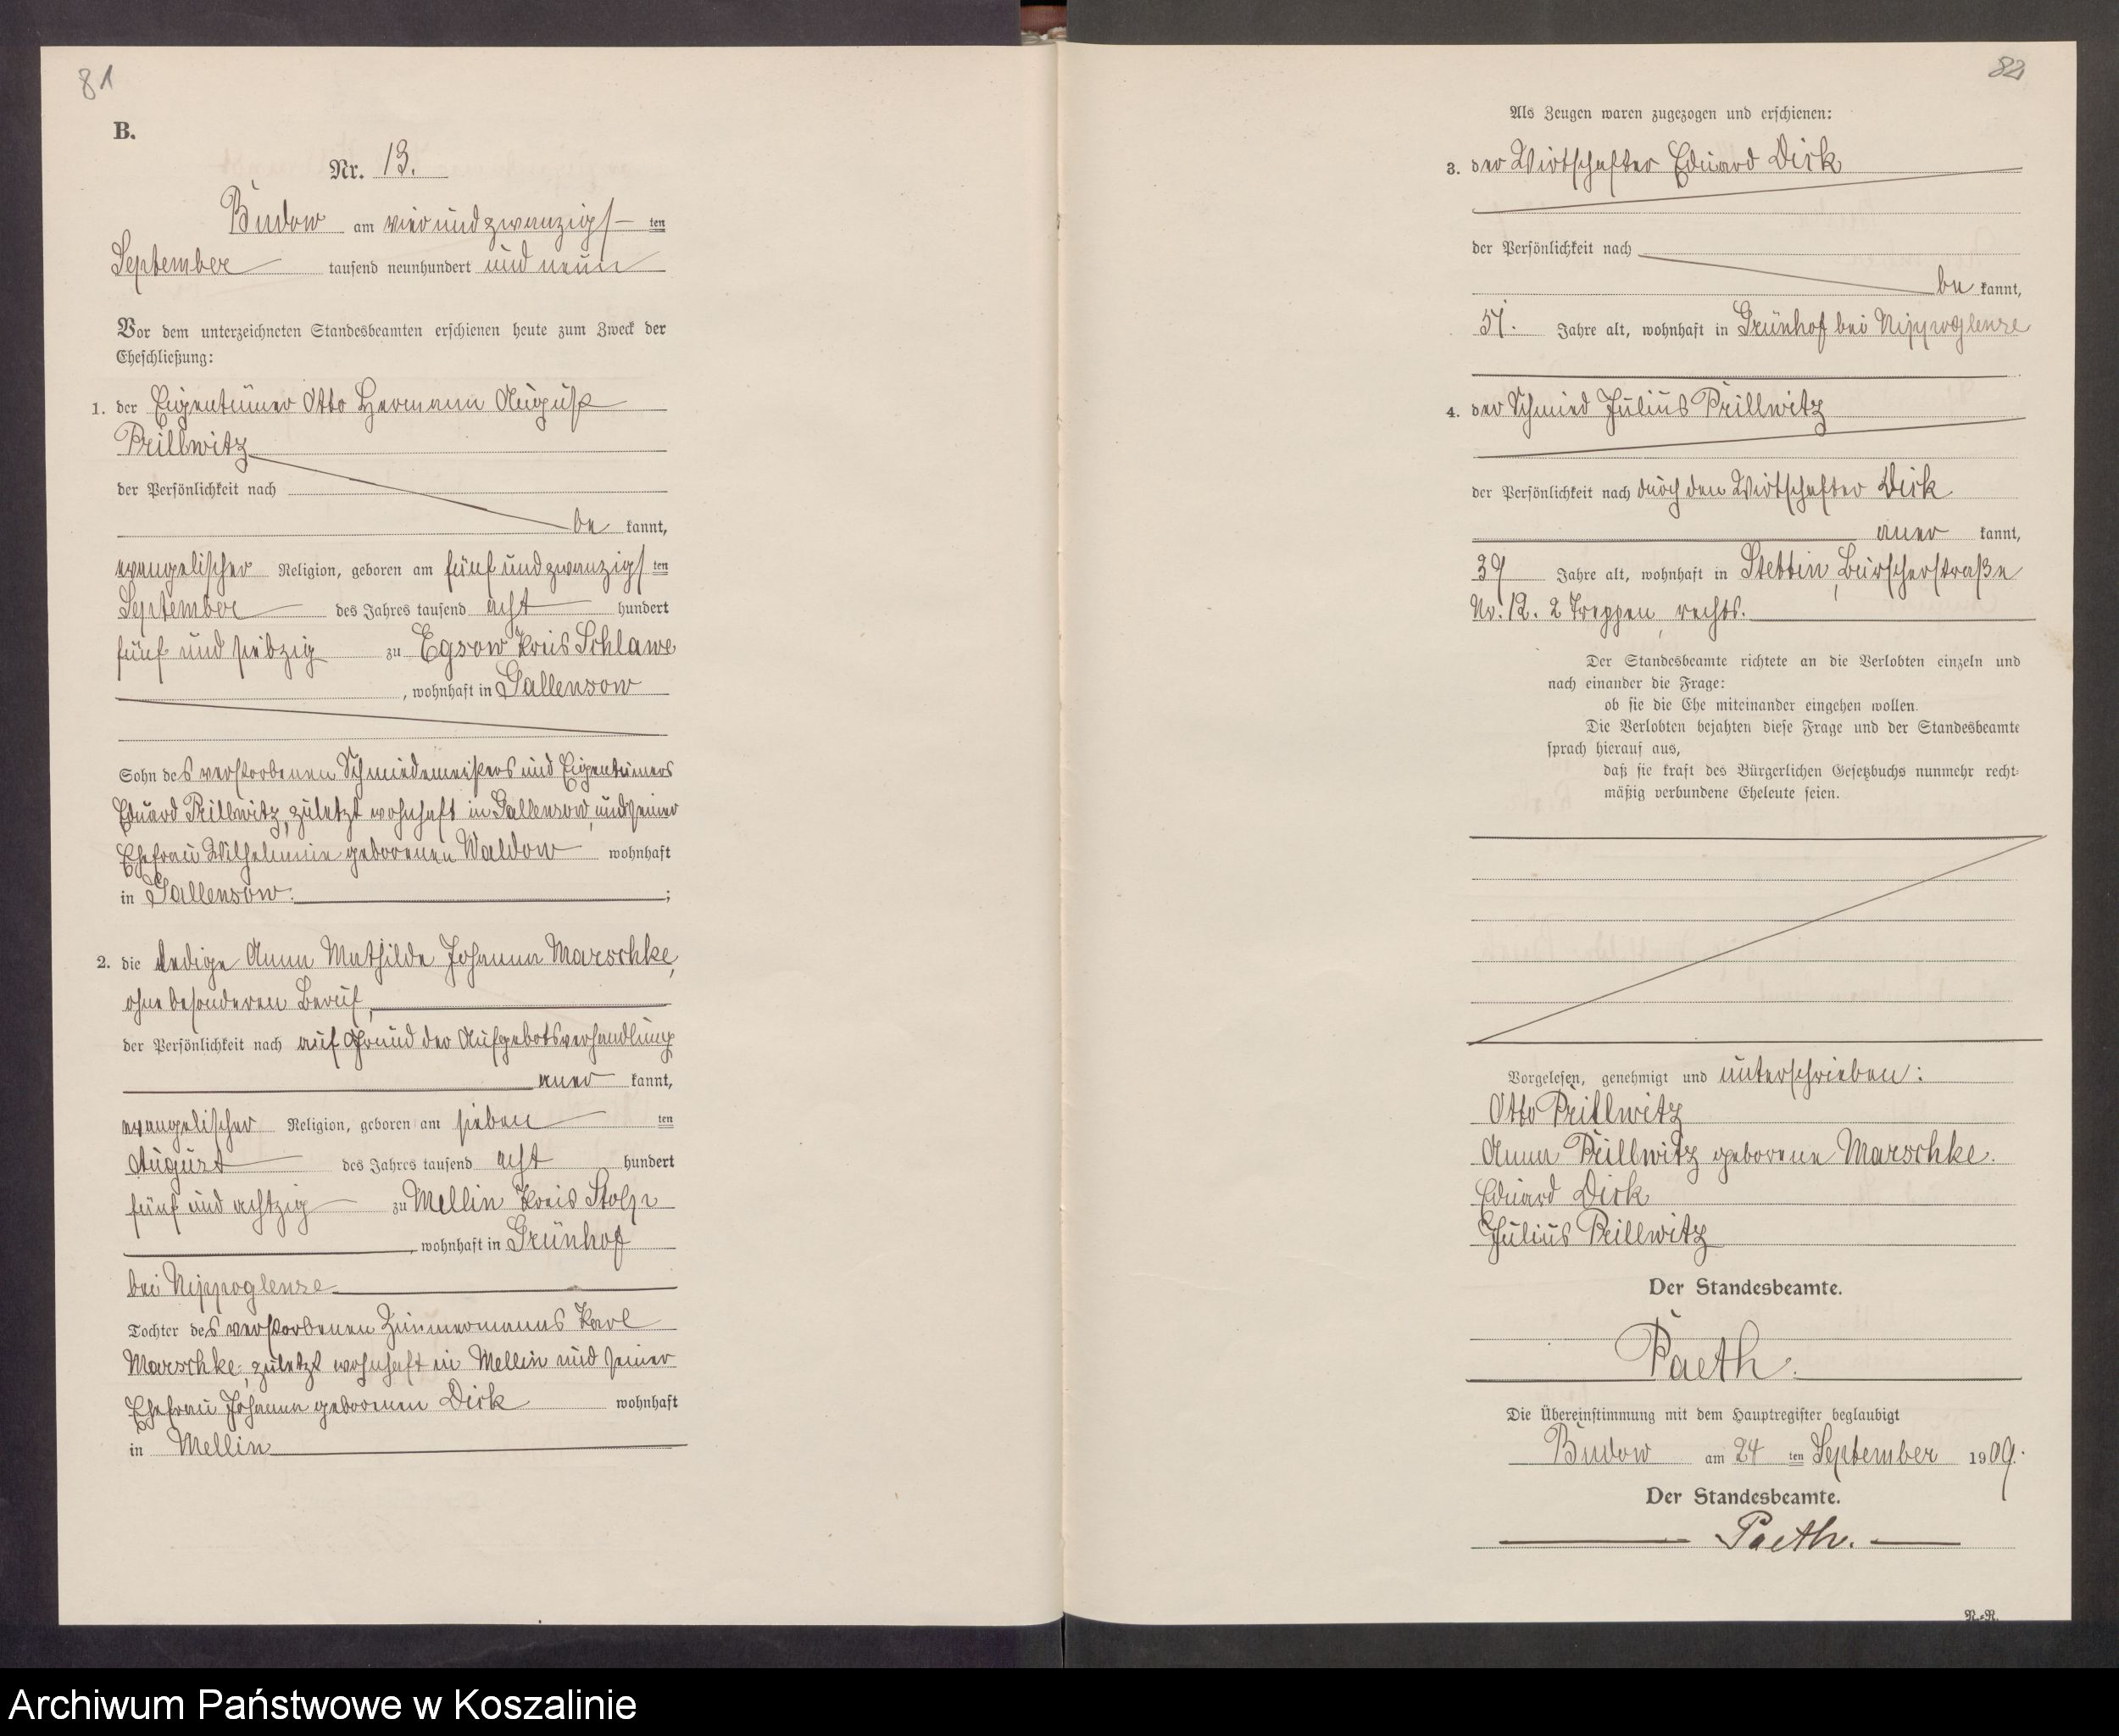 81
B.
Nr. 13.
Budow am vier und zwanzigs ten
September tausend neunhundert und neun
Vor dem unterzeichneten Standesbeamten erschienen heute zum Zweck der
Eheschließung:
1. der Eigentümer Otto Hermann August
Prillwitz
der Persönlichkeit nach
be kannt,
evangelischer Religion, geboren am fünf und zwanzigs ten
September des Jahres tausend acht hundert
fünf und siebzig zu Egsow Kreis Schlawe
, wohnhaft in Gallensow
Sohn des verstorbenen Schmiedemeisters und Eigentümers
Eduard Prillwitz, zuletzt wohnhaft in Gallensow, und seiner
Ehefrau Wilhelmine geborenen Waldow wohnhaft
in Gallensow. ;
2. die ledige Anna Mathilde Johanna Marschke,
ohne besonderen Beruf,
der Persönlichkeit nach auf Grund der Aufgebotsverhandlung
aner kannt,
evangelischer Religion, geboren am sieben ten
August des Jahres tausend acht hundert
fünf und achtzig zu Mellin Kreis Stolp
, wohnhaft in Grünhof
bei Nippoglense
Tochter des verstorbenen Zimmermanns Karl
Marschke, zuletzt wohnhaft in Mellin und seiner
Ehefrau Johanna geborenen Dirk wohnhaft
in Mellin
82
Als Zeugen waren zugezogen und erschienen:
3. der Wirtschafter Eduard Dirk
der Persönlichkeit nach
be kannt,
Jahre alt, wohnhaft in Grünhof bei Nippoglense
4. der Schmied Julius Prillwitz
der Persönlichkeit nach durch den Wirtschafter Dirk
aner kannt,
39 Jahre alt, wohnhaft in Stettin,
No. 12. 2 Treppen, rechts.
Der Standesbeamte richtete an die Verlobten einzeln und
nach einander die Frage:
ob sie die Ehe miteinander eingehen wollen.
Die Verlobten bejahten diese Frage und der Standesbeamte
sprach hierauf aus,
daß sie kraft des Bürgerlichen Gesetzbuchs nunmehr recht-
mäßig verbundene Eheleute seien.
Vorgelesen, genehmigt und unterschrieben:
Otto Prillwitz
Anna Prillwitz geborene Marschke.
Eduard Dirk
Julius Prillwitz
Der Standesbeamte.
Paeth.
Die Übereinstimmung mit dem Hauptregister beglaubigt
Budow am 24 ten September 1909.
Der Standesbeamte.
Paeth.
N.-R.
Archiwum Państwowe w Koszalinie